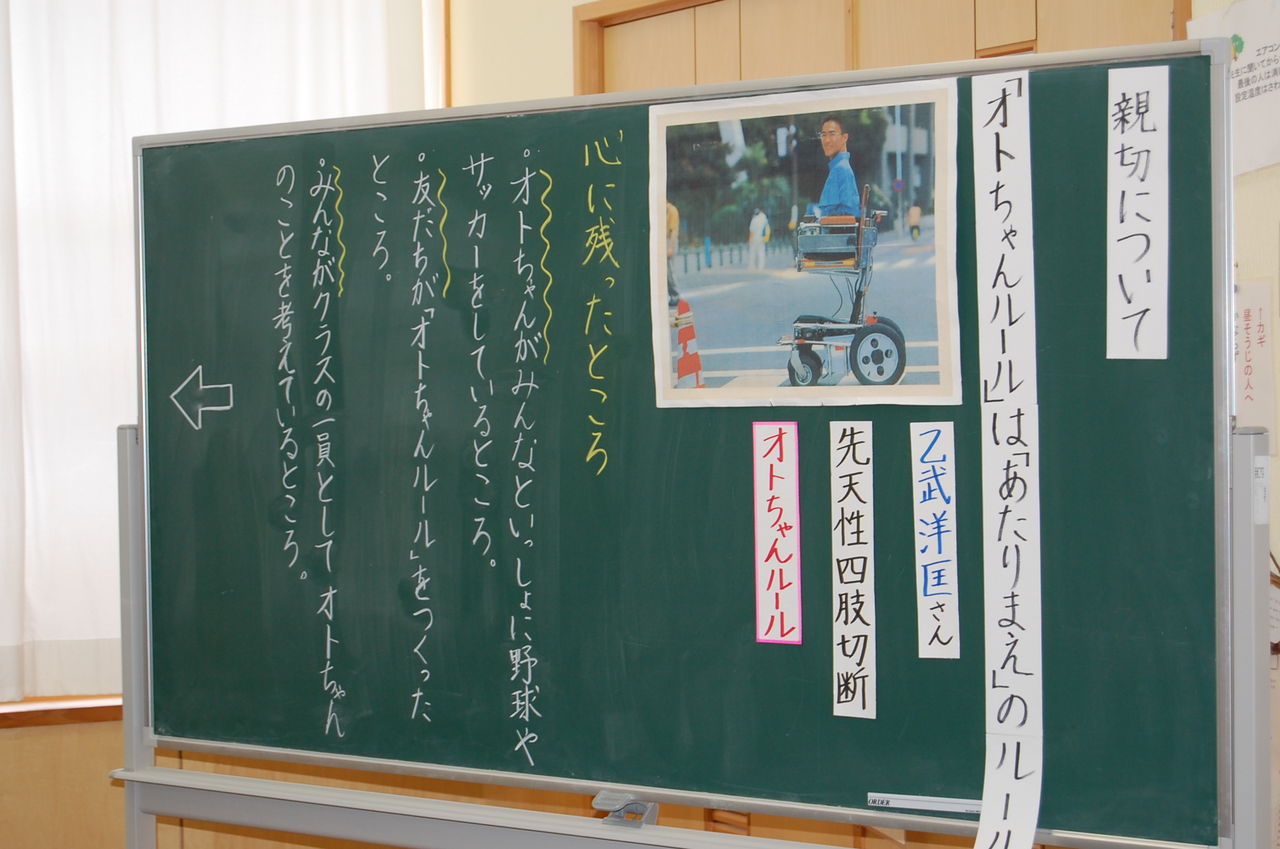 親切について
「オトちゃんルール」は「あたりまえ」のルール
乙武洋匡さん
先天性四肢切断
オトちゃんルール
心に残ったところ
。オトちゃんがみんなといっしょに野球や
サッカーをしているところ。
。友だちが「オトちゃんルール」をつくった
ところ。
。みんながクラスの一員として オトちゃん
のことを考えているところ。
エアコン
最後の人は消
設定温度はさわ
←カギ
昼そうじの人へ
ORDER